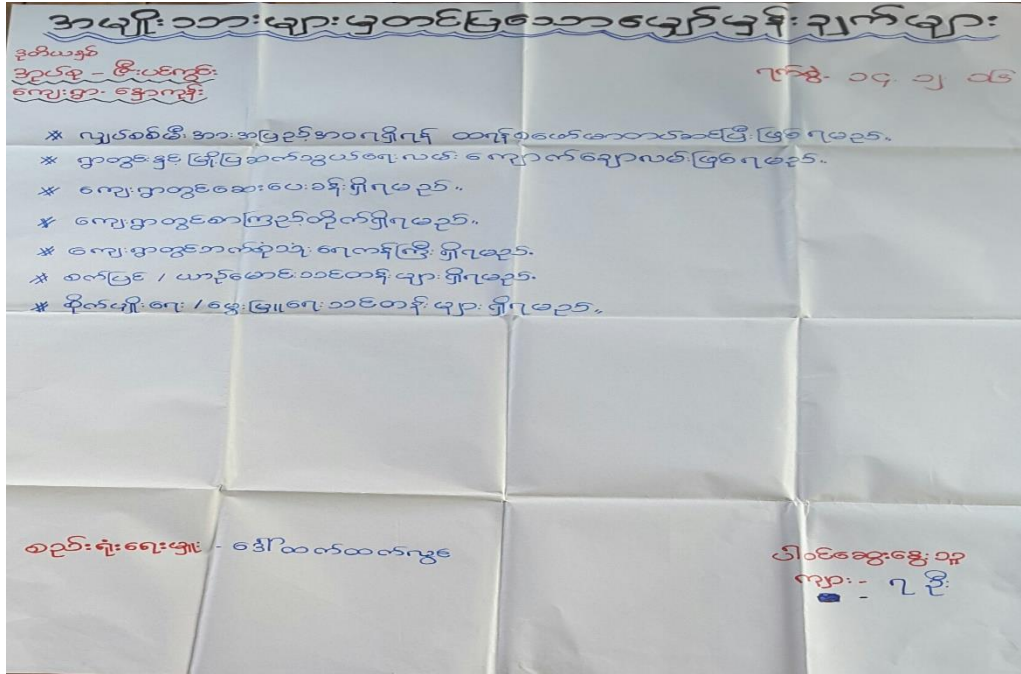 အမျိုးသားများမှတင်ပြသောမျှော်မှန်းချက်များ
ဒုတိယနှစ်
အုပ်စု - ဇီးပင်ကွင်း
ကျေးရွာ-
ရက်စွဲ- ၁၄. ၁၂ ၁၆
* လျှပ်စစ်မီး အားအပြည့်အဝရရှိရန် ထရန်စဖော်မာတပ်ဆင်ပြီးဖြစ်ရမည်။
* ရွာတွင်းနှင့် မြို့ပြဆက်သွယ်ရေးလမ်း ကျောက်ချောလမ်းဖြစ်ရမည်။
* ကျေးရွာတွင်ဆေးပေးခန်းရှိရမည်။
* ကျေးရွာတွင်စာကြည့်တိုက်ရှိရမည်။
* ကျေးရွာတွင်ဘက်စုံသုံးရေကန်ကြီးရှိရမည်။
* စက်ပြင် / ယာဉ်မောင်းသင်တန်းများရှိရမည်။
* စိုက်ပျိုးရေး / မွေးမြူရေးသင်တန်းများရှိရမည်။
စည်းရုံးရေးမှူး - ဒေါ်ထက်ထက်လွင်
ပါဝင်ဆွေးနွေးသူ
ကျား - ၇ ဦး